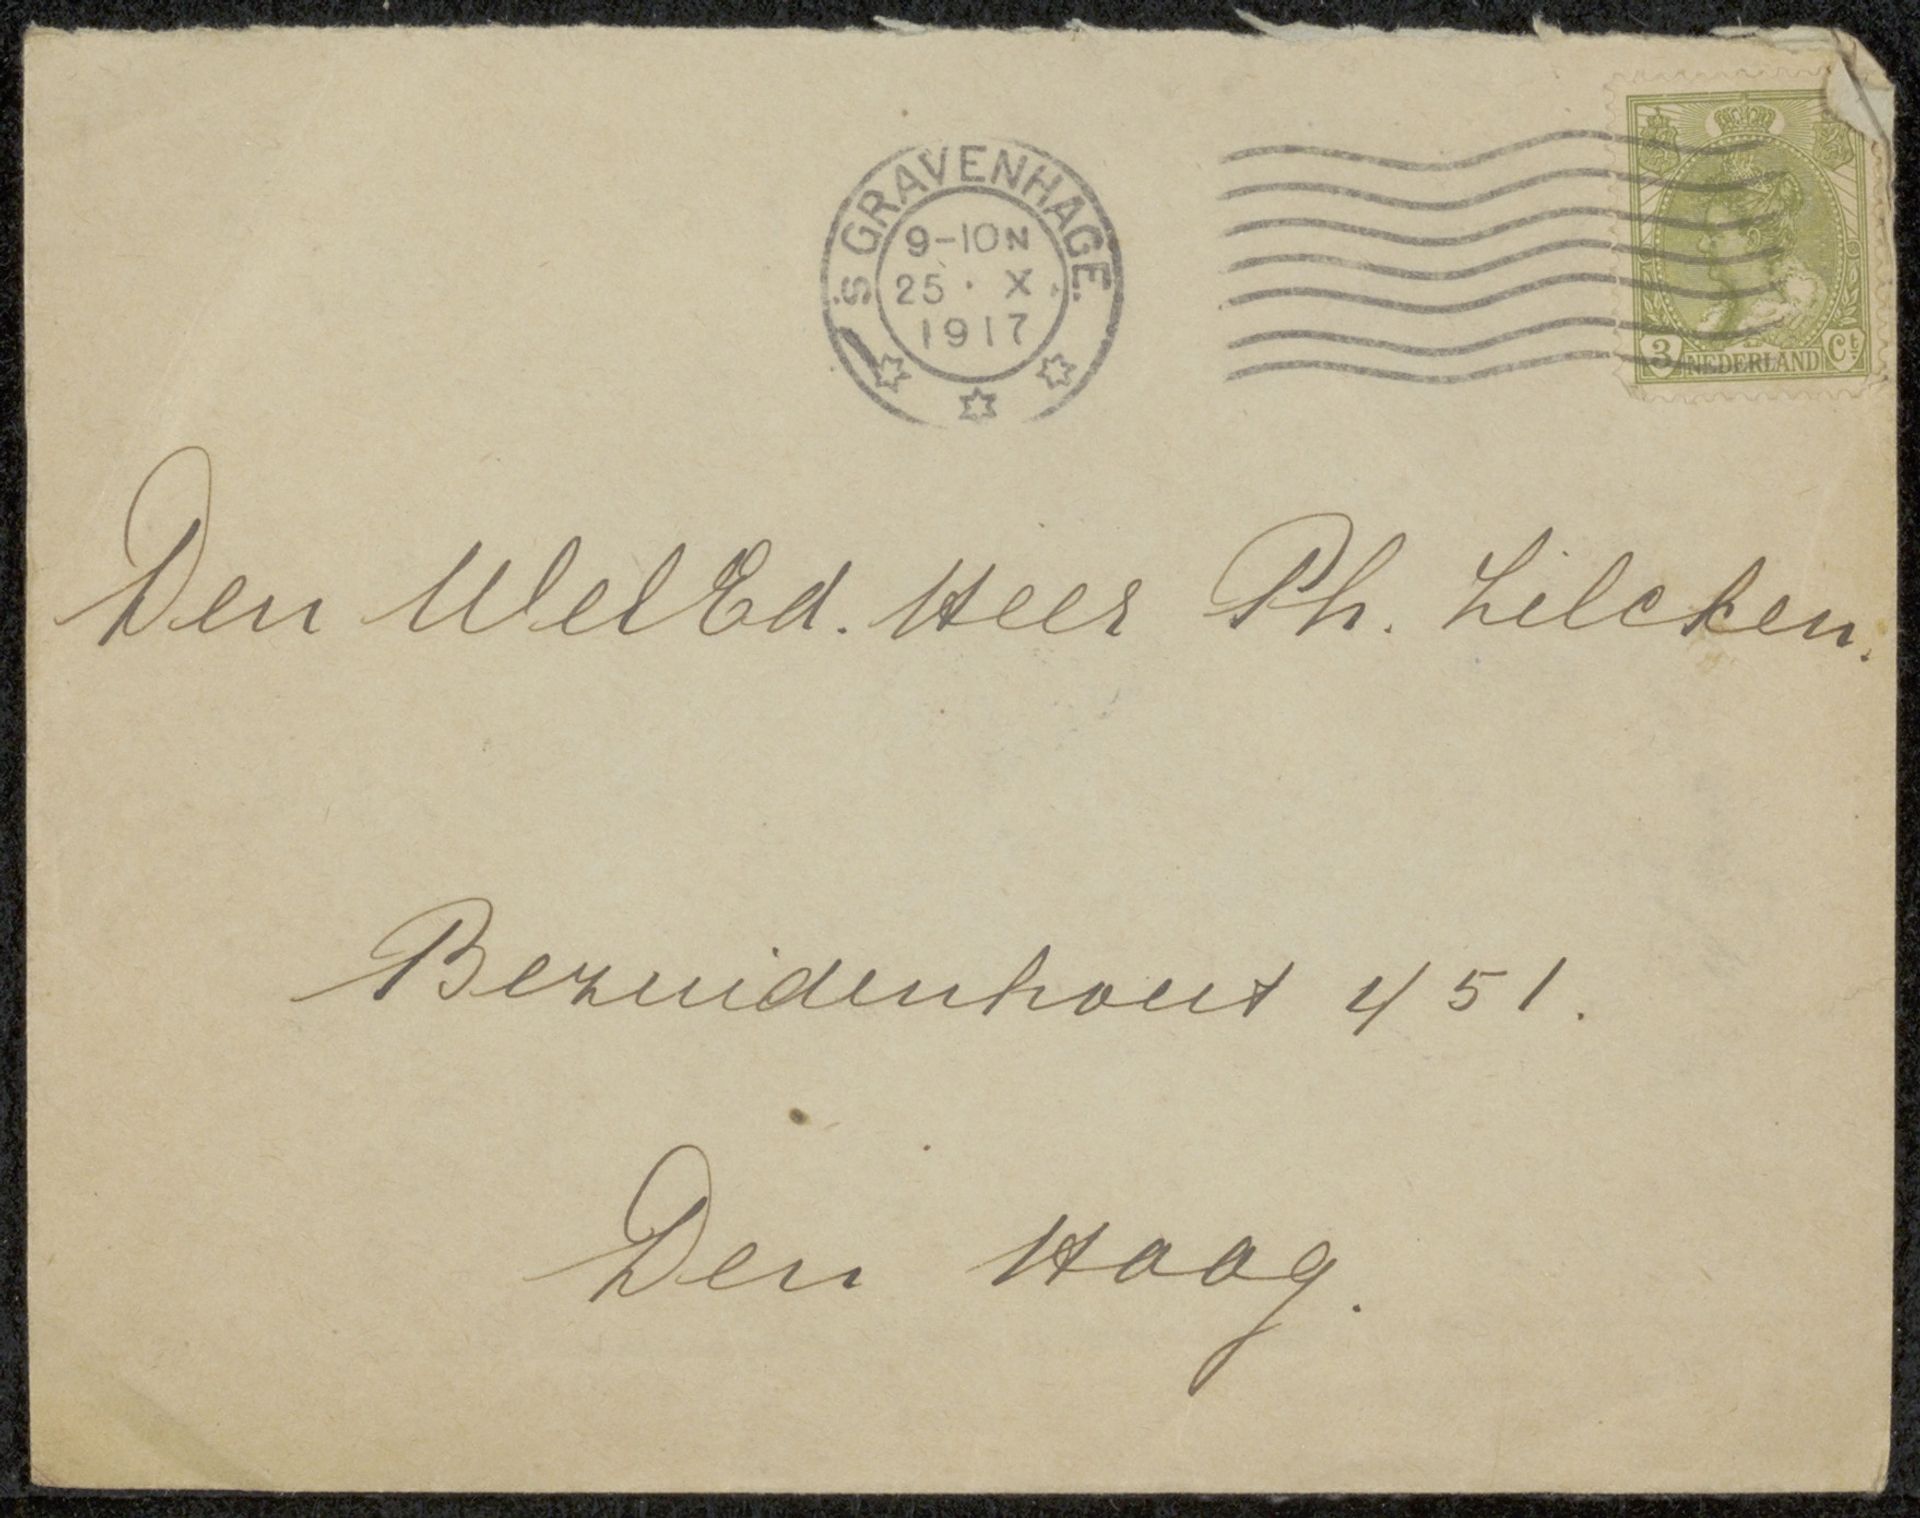 'S GRAVENHAGE.
9-10N
25 · X
1917
3 NEDERLAND Ct
Den WelEd. Heer Ph. Zilcken.
Bezuidenhout 451.
Den Haag.